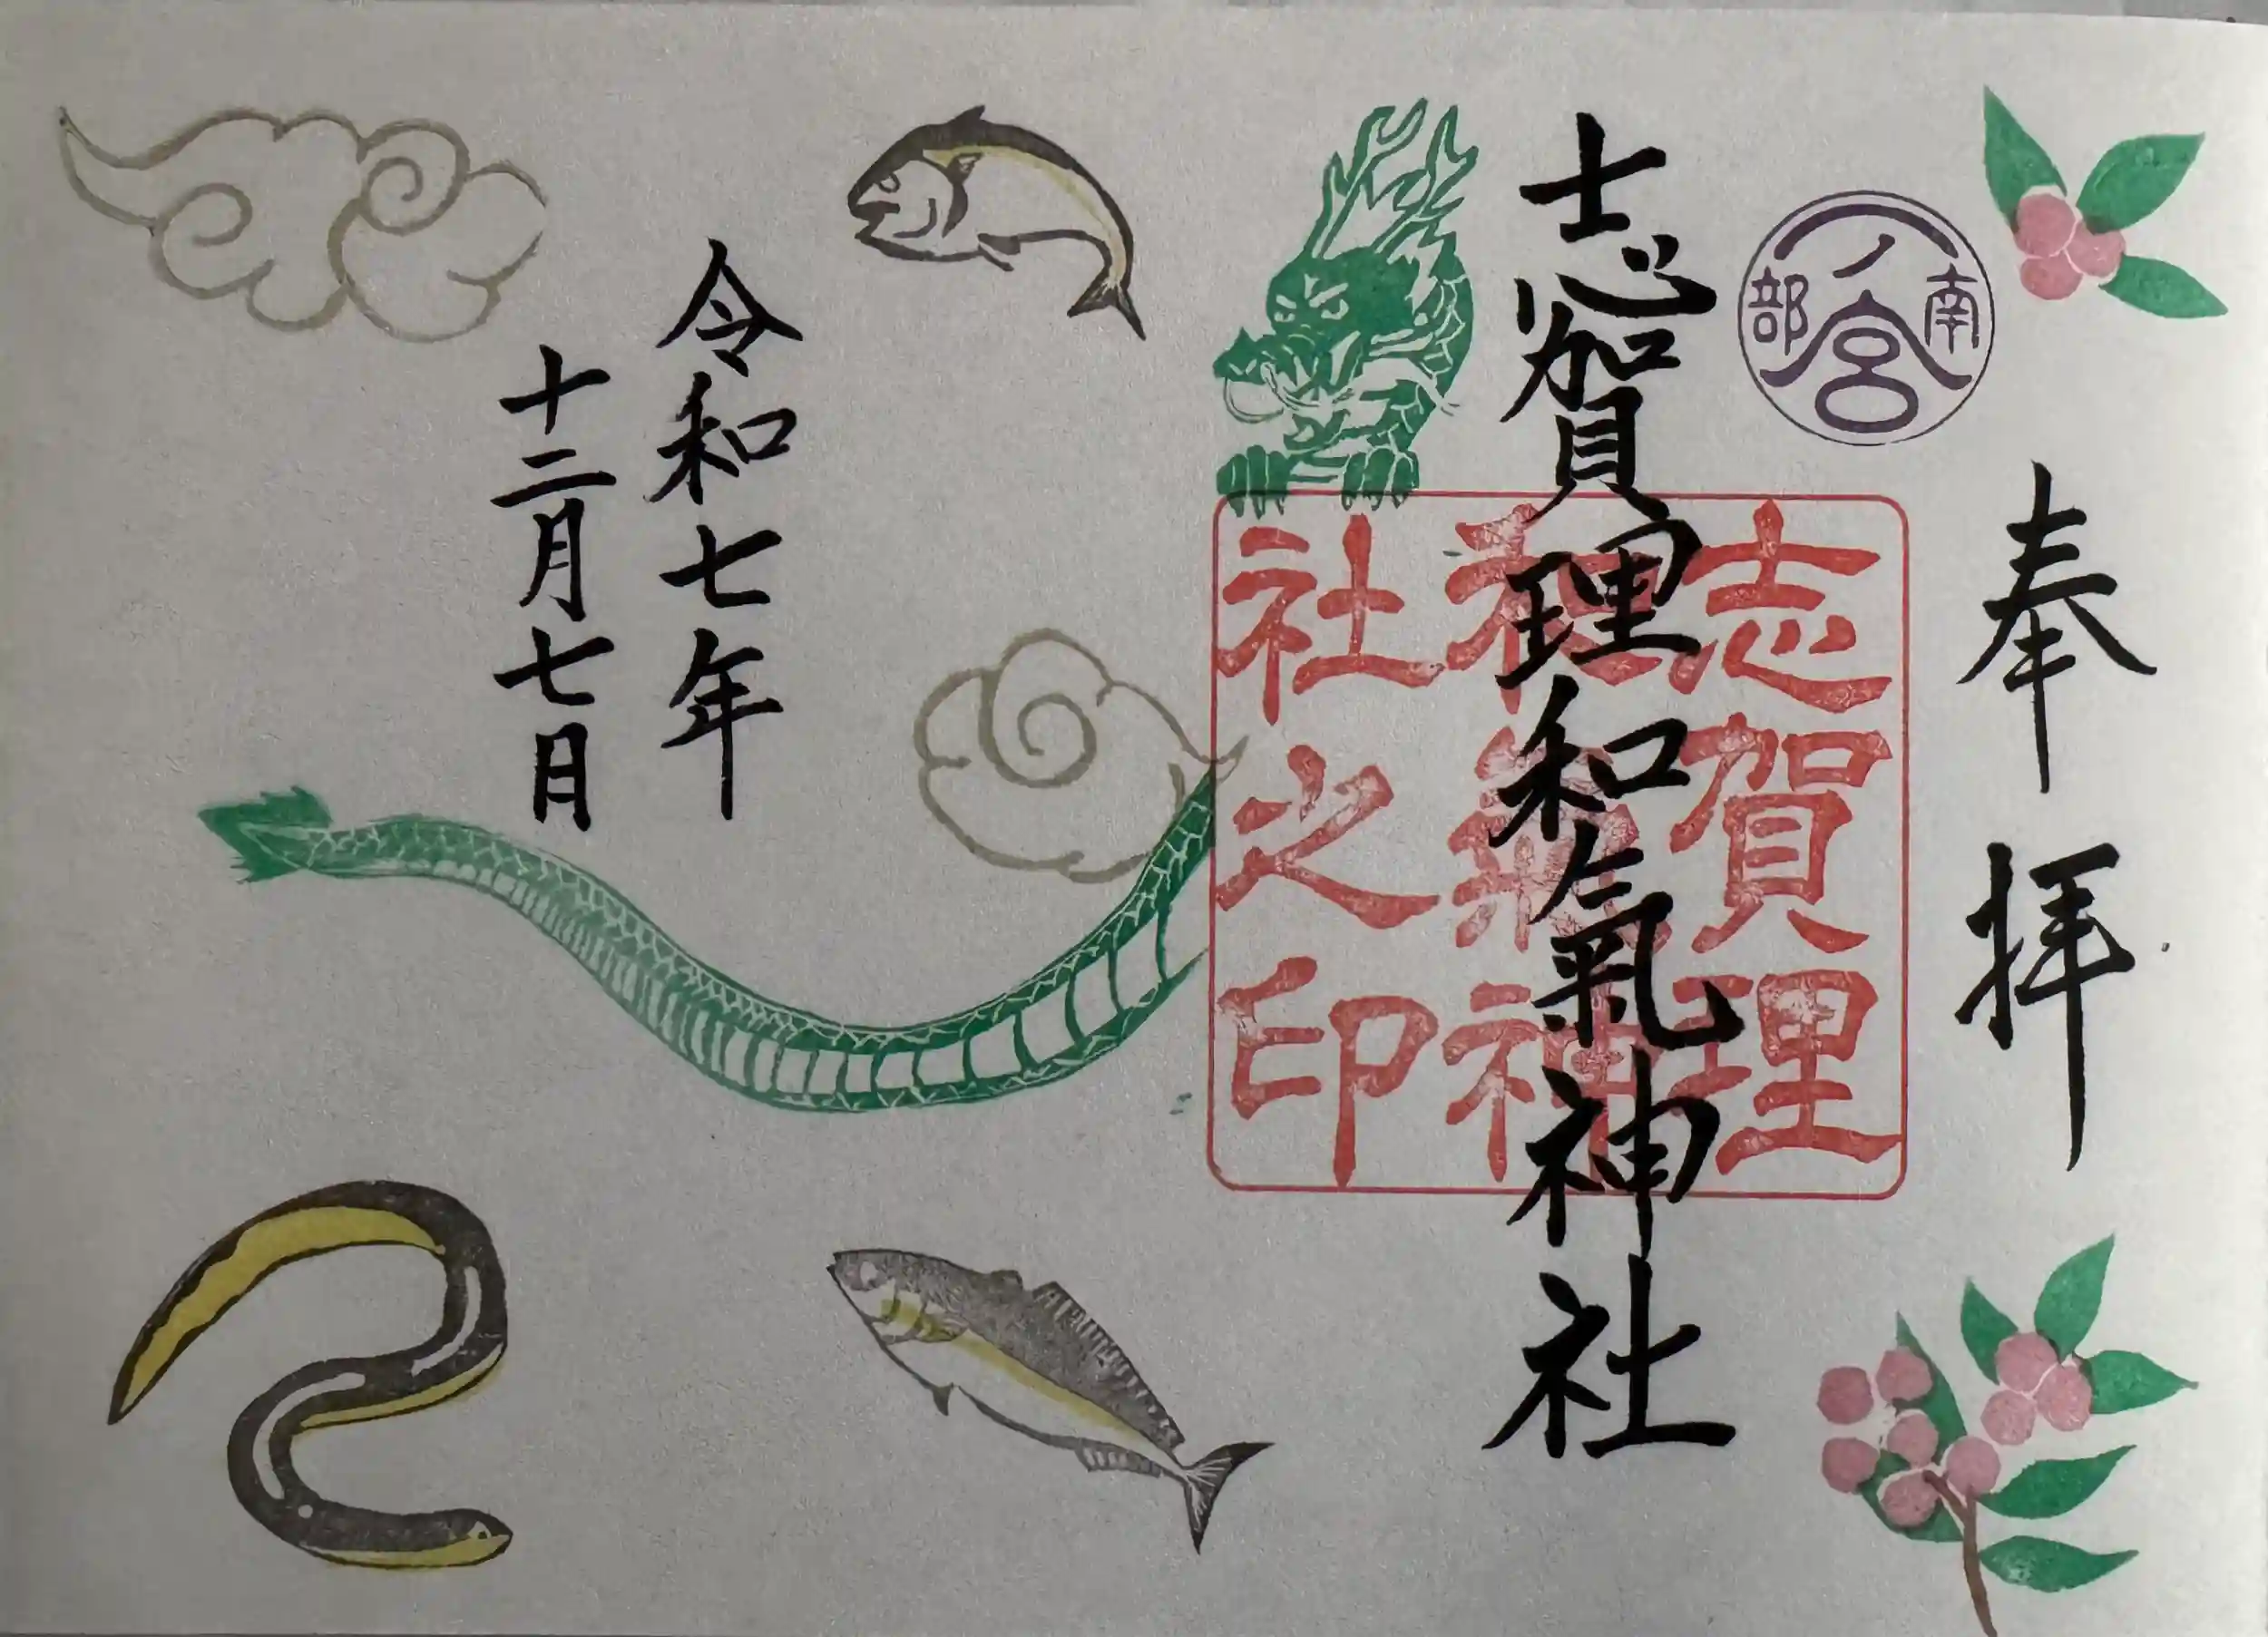 奉拝
南部
一ノ宮
志賀理和氣神社
志賀理
和氣神
社之印
令和七年
十二月七日